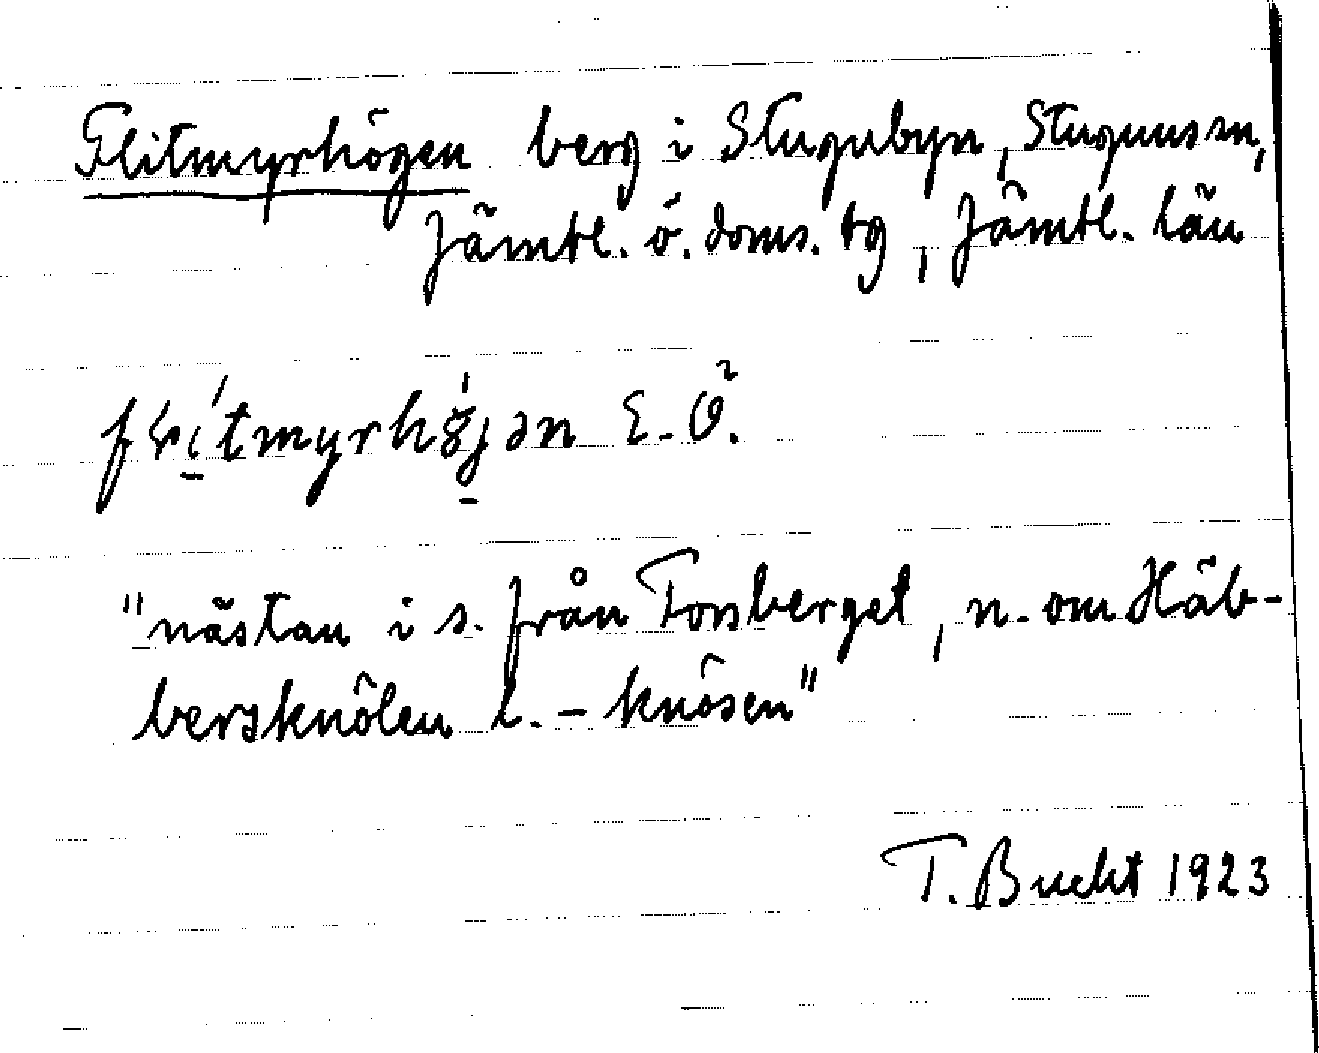 Flitmyrhögen berg i Stugubyn, Stuguns sn,
Jämtl. ö. doms. tg, Jämtl. län
tmyrh E. Ö.
"nästan i s. från Torsberget, n. om Häb-
bersknölen l. - knösen"
T. Bucht 1923